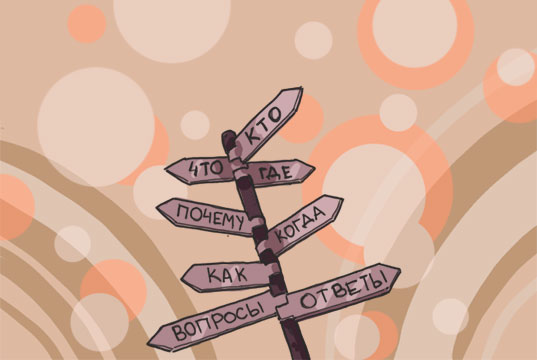 КТО
ЧТО
ГДЕ
ПОЧЕМУ
КОГДА
КАК
ВОПРОСЫ
ОТВЕТЫ